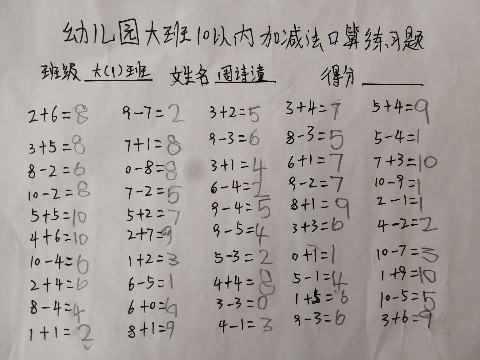 幼儿园大班10以内加减法口算练习题
班级 大(1)班 姓名 周诗濤 得分
2+6=8 9-7=2 3+2=5 3+4=7 5+4=9
3+5=8 7+1=8 9-3=6 8-3=5 5-4=1
8-2=6 0-8=8 3+1=4 6+1=7 7+3=10
10-2=8 7-2=5 6-4=2 9-2=7 10-9=1
5+5=10 5+2=7 9-4=5 8+1=9 2-1=1
4+6=10 2+7=9 9-5=4 3+3=6 4-2=2
10-4=6 1+2=3 5-3=2 0+1=1 10-7=3
2+4=6 6-5=1 4+4=8 5-1=4 1+9=10
8-4=4 6+0=6 3-3=0 1+5=6 10-5=5
1+1=2 8+1=9 4-1=3 9-3=6 3+6=9